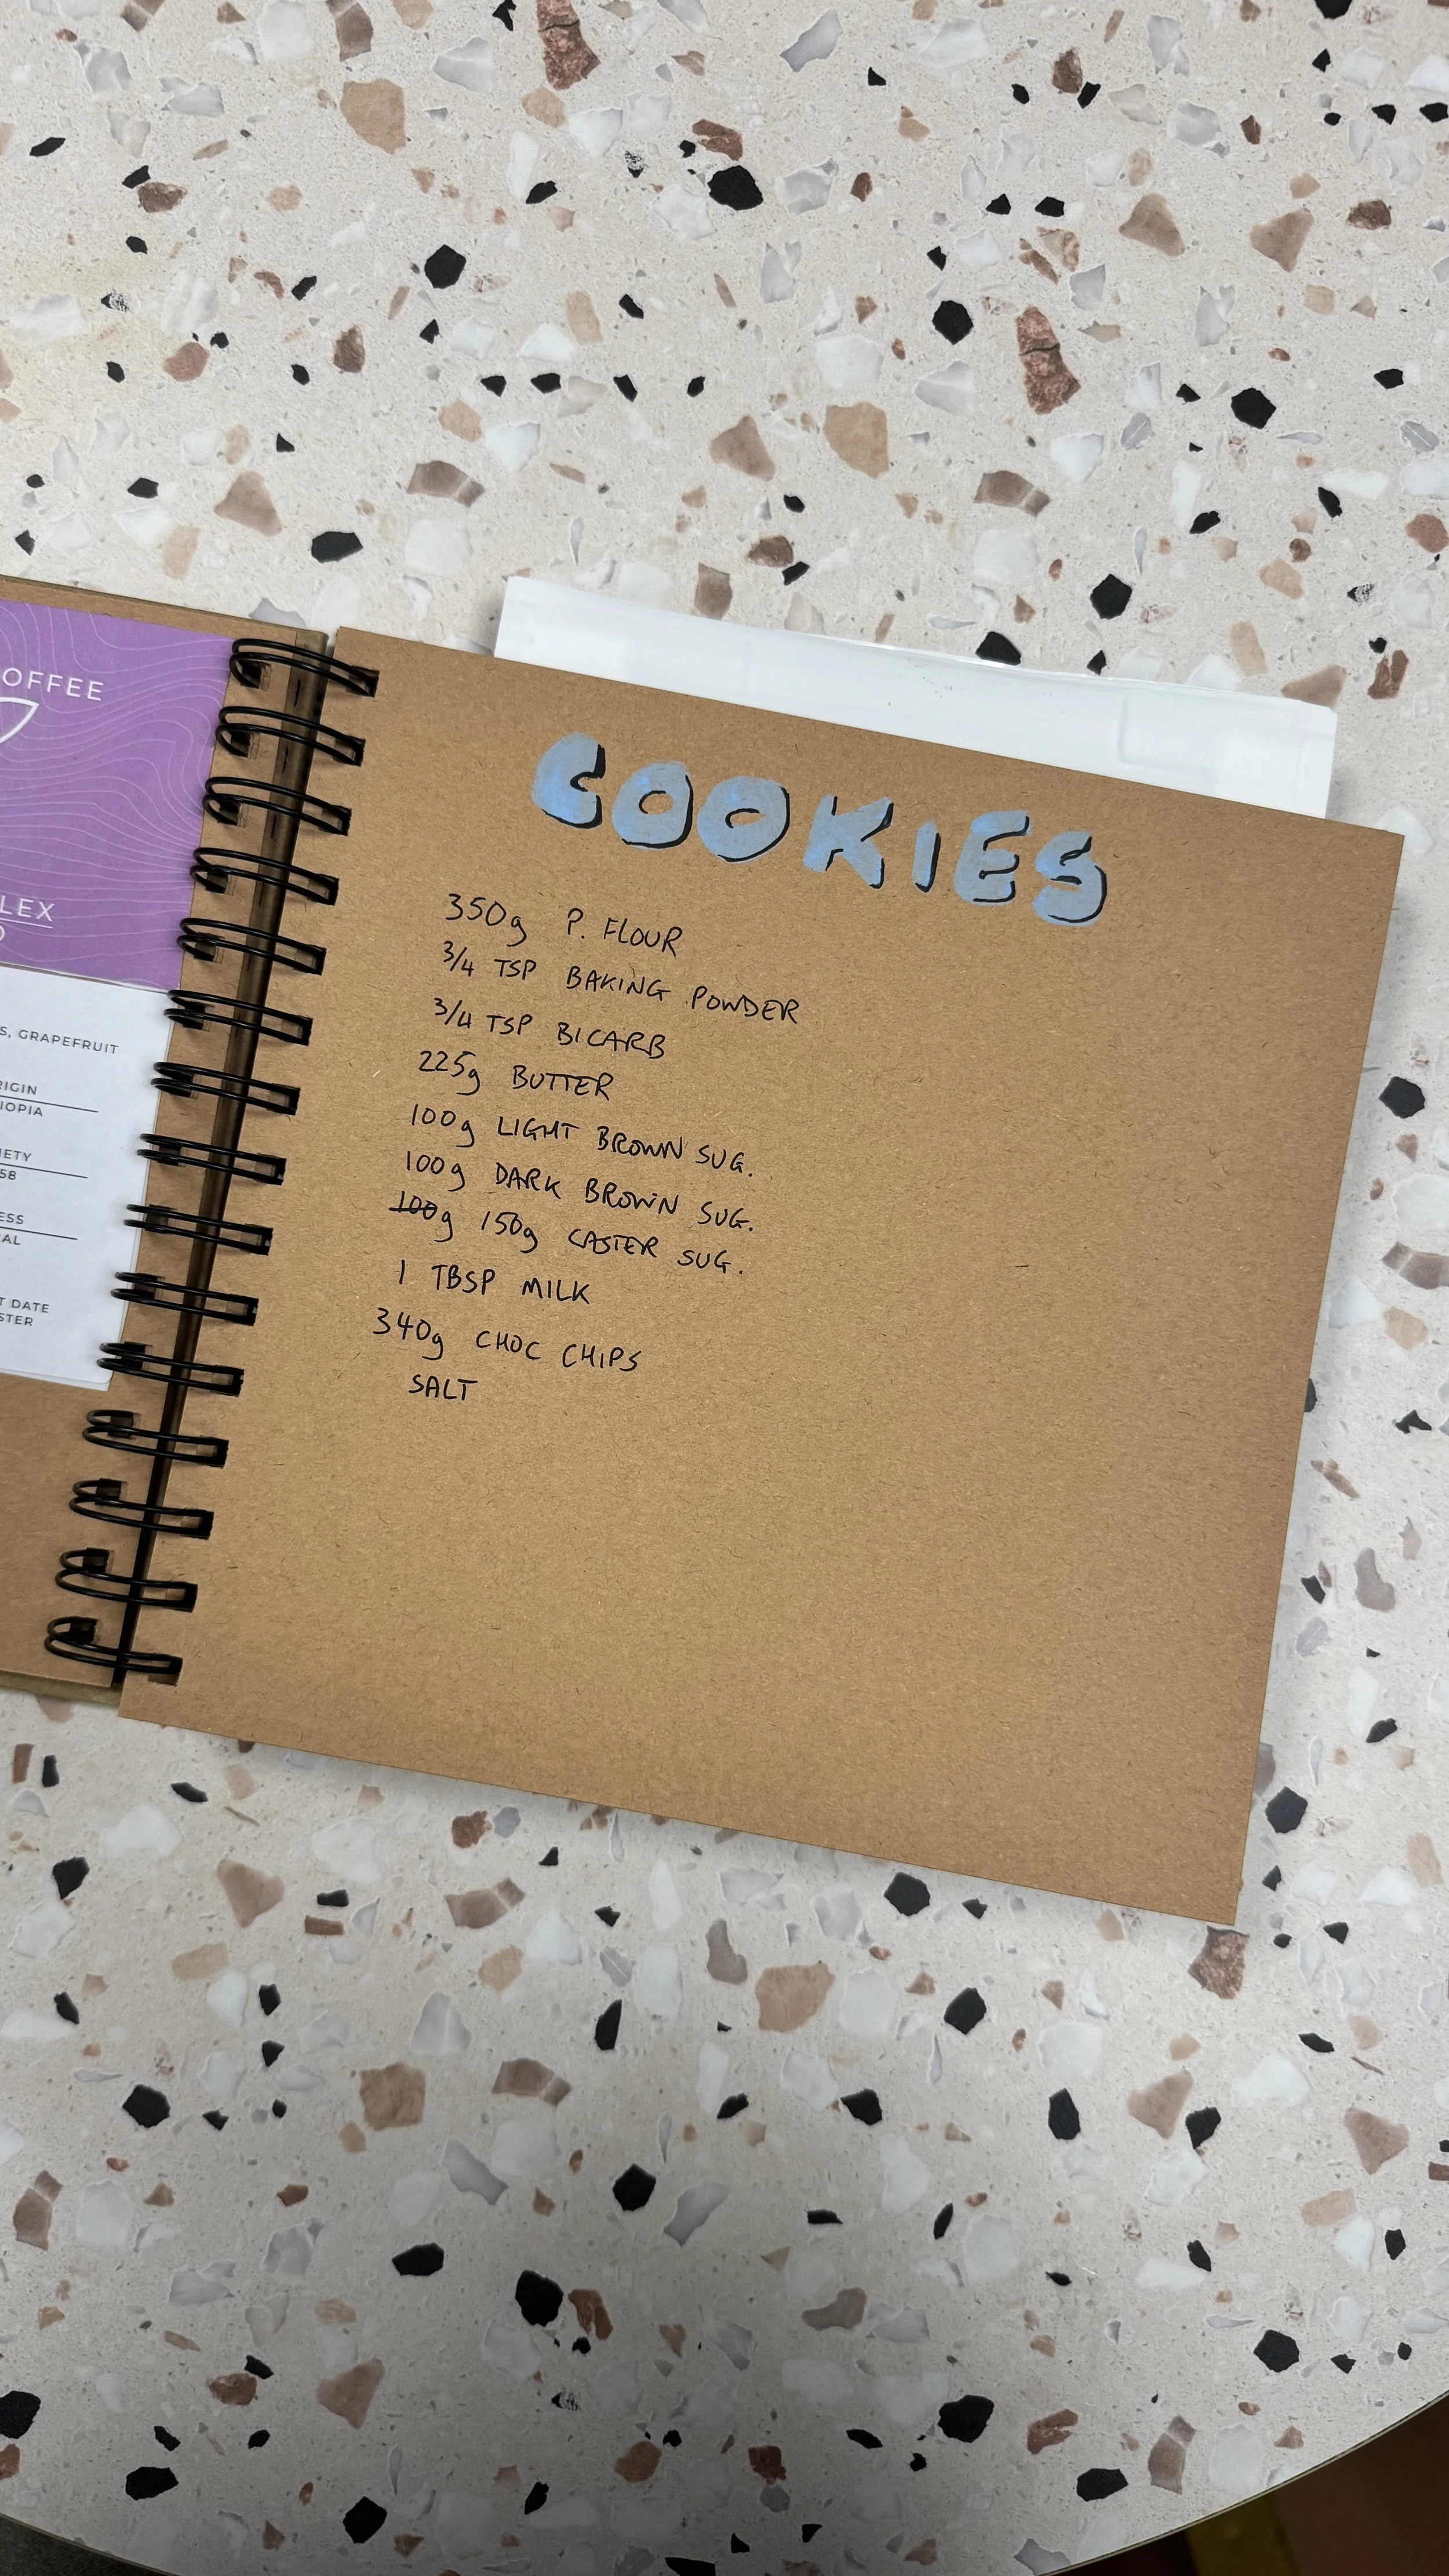 OFFEE
LEX
S, GRAPEFRUIT
RIGIN
IOPIA
IETY
58
ESS
AL
T DATE
STER
COOKIES
350g P. FLOUR
3/4 TSP BAKING POWDER
3/4 TSP BICARB
225g BUTTER
100g LIGHT BROWN SUG.
100g DARK BROWN SUG.
100g 150g CASTER SUG.
1 TBSP MILK
340g CHOC CHIPS
SALT